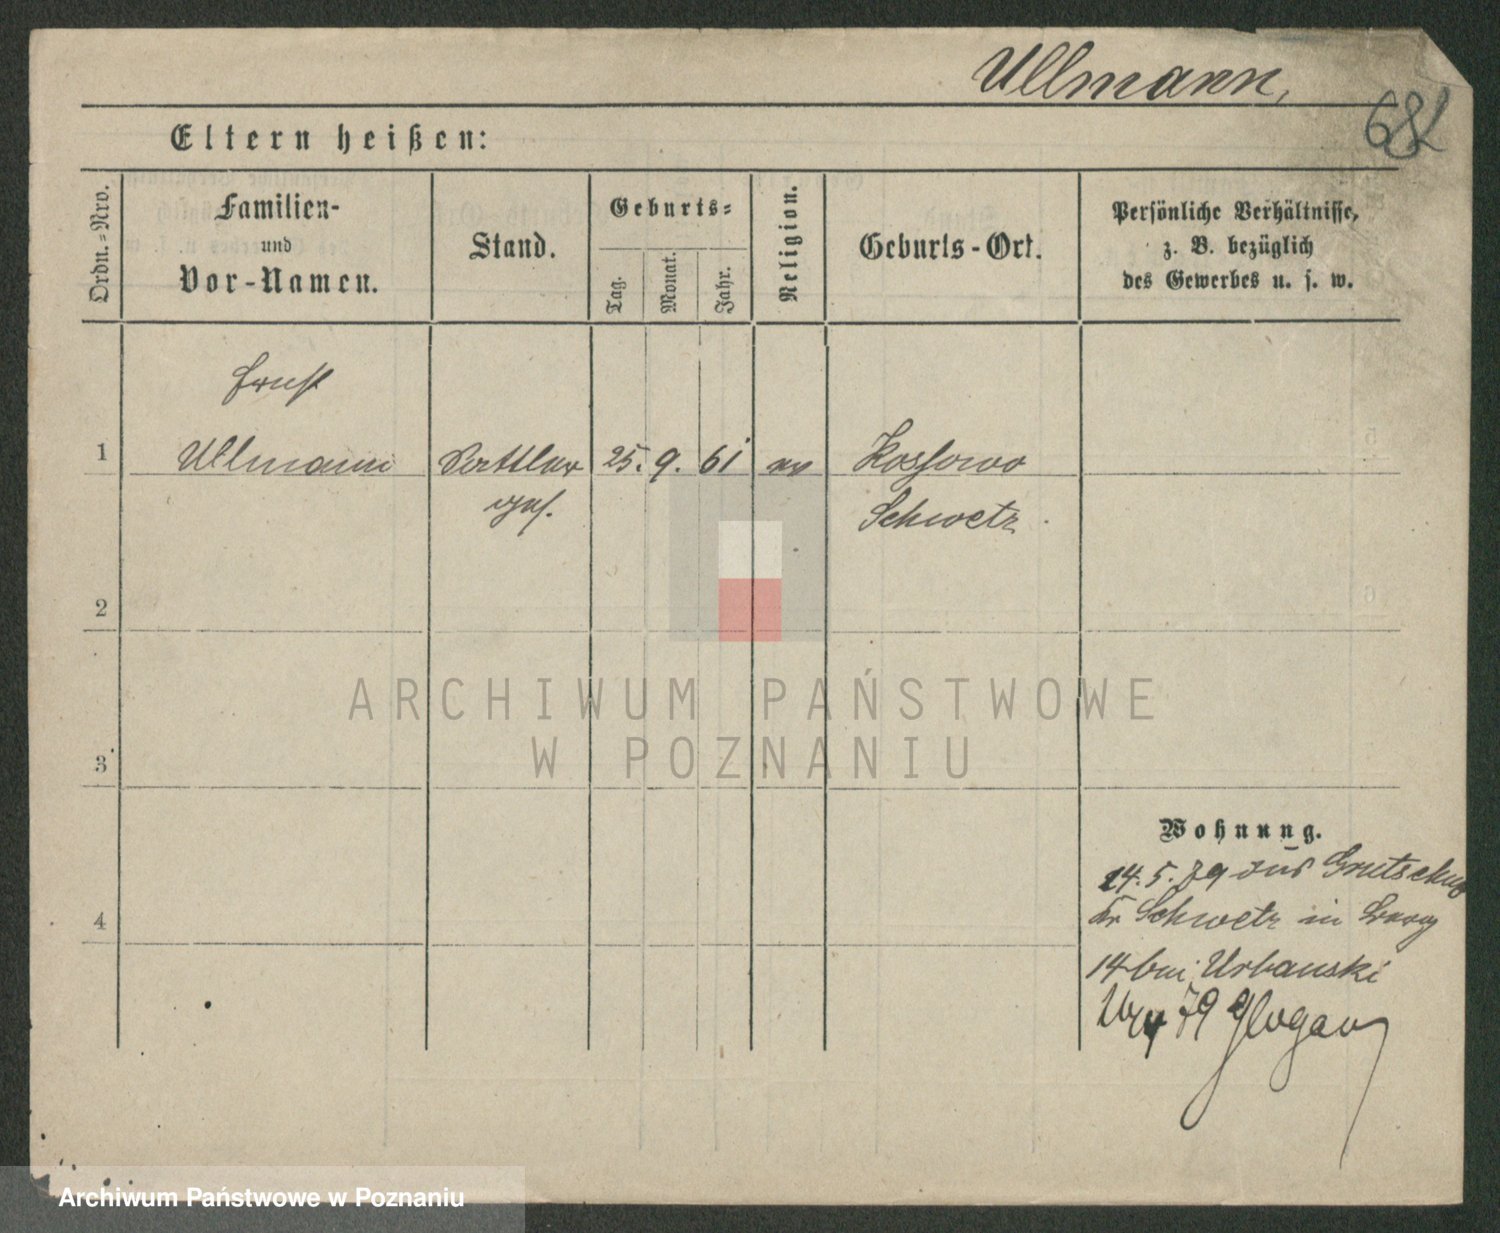 Ullmann,
Eltern heißen:
Ordn.=Nro.
Familien-
und
Vor-Namen.
Stand.
Geburts=
Tag.
Monat.
Jahr.
Religion.
Geburts-Ort.
Persönliche Verhältnisse,
z. B. bezüglich
des Gewerbes u. s. w.
Ernst
1 Ullmann Sattler 25. 9. 61 ev Kossowo
ges. Schwetz
2
3
4
Wohnung.
14. 5. 79 aus Grutschno
Kr Schwetz in
14 bei Urbanski
79 Glogau
ARCHIWUM PAŃSTWOWE
W POZNANIU
Archiwum Państwowe w Poznaniu